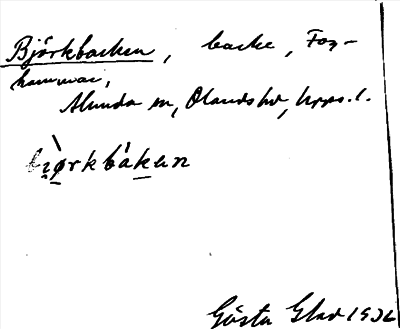 Björkbacken, backe, Fog-
hammar,
Alunda sn, Olands hd, Upps. l.
bjørkbakən
Gösta Glad 1932